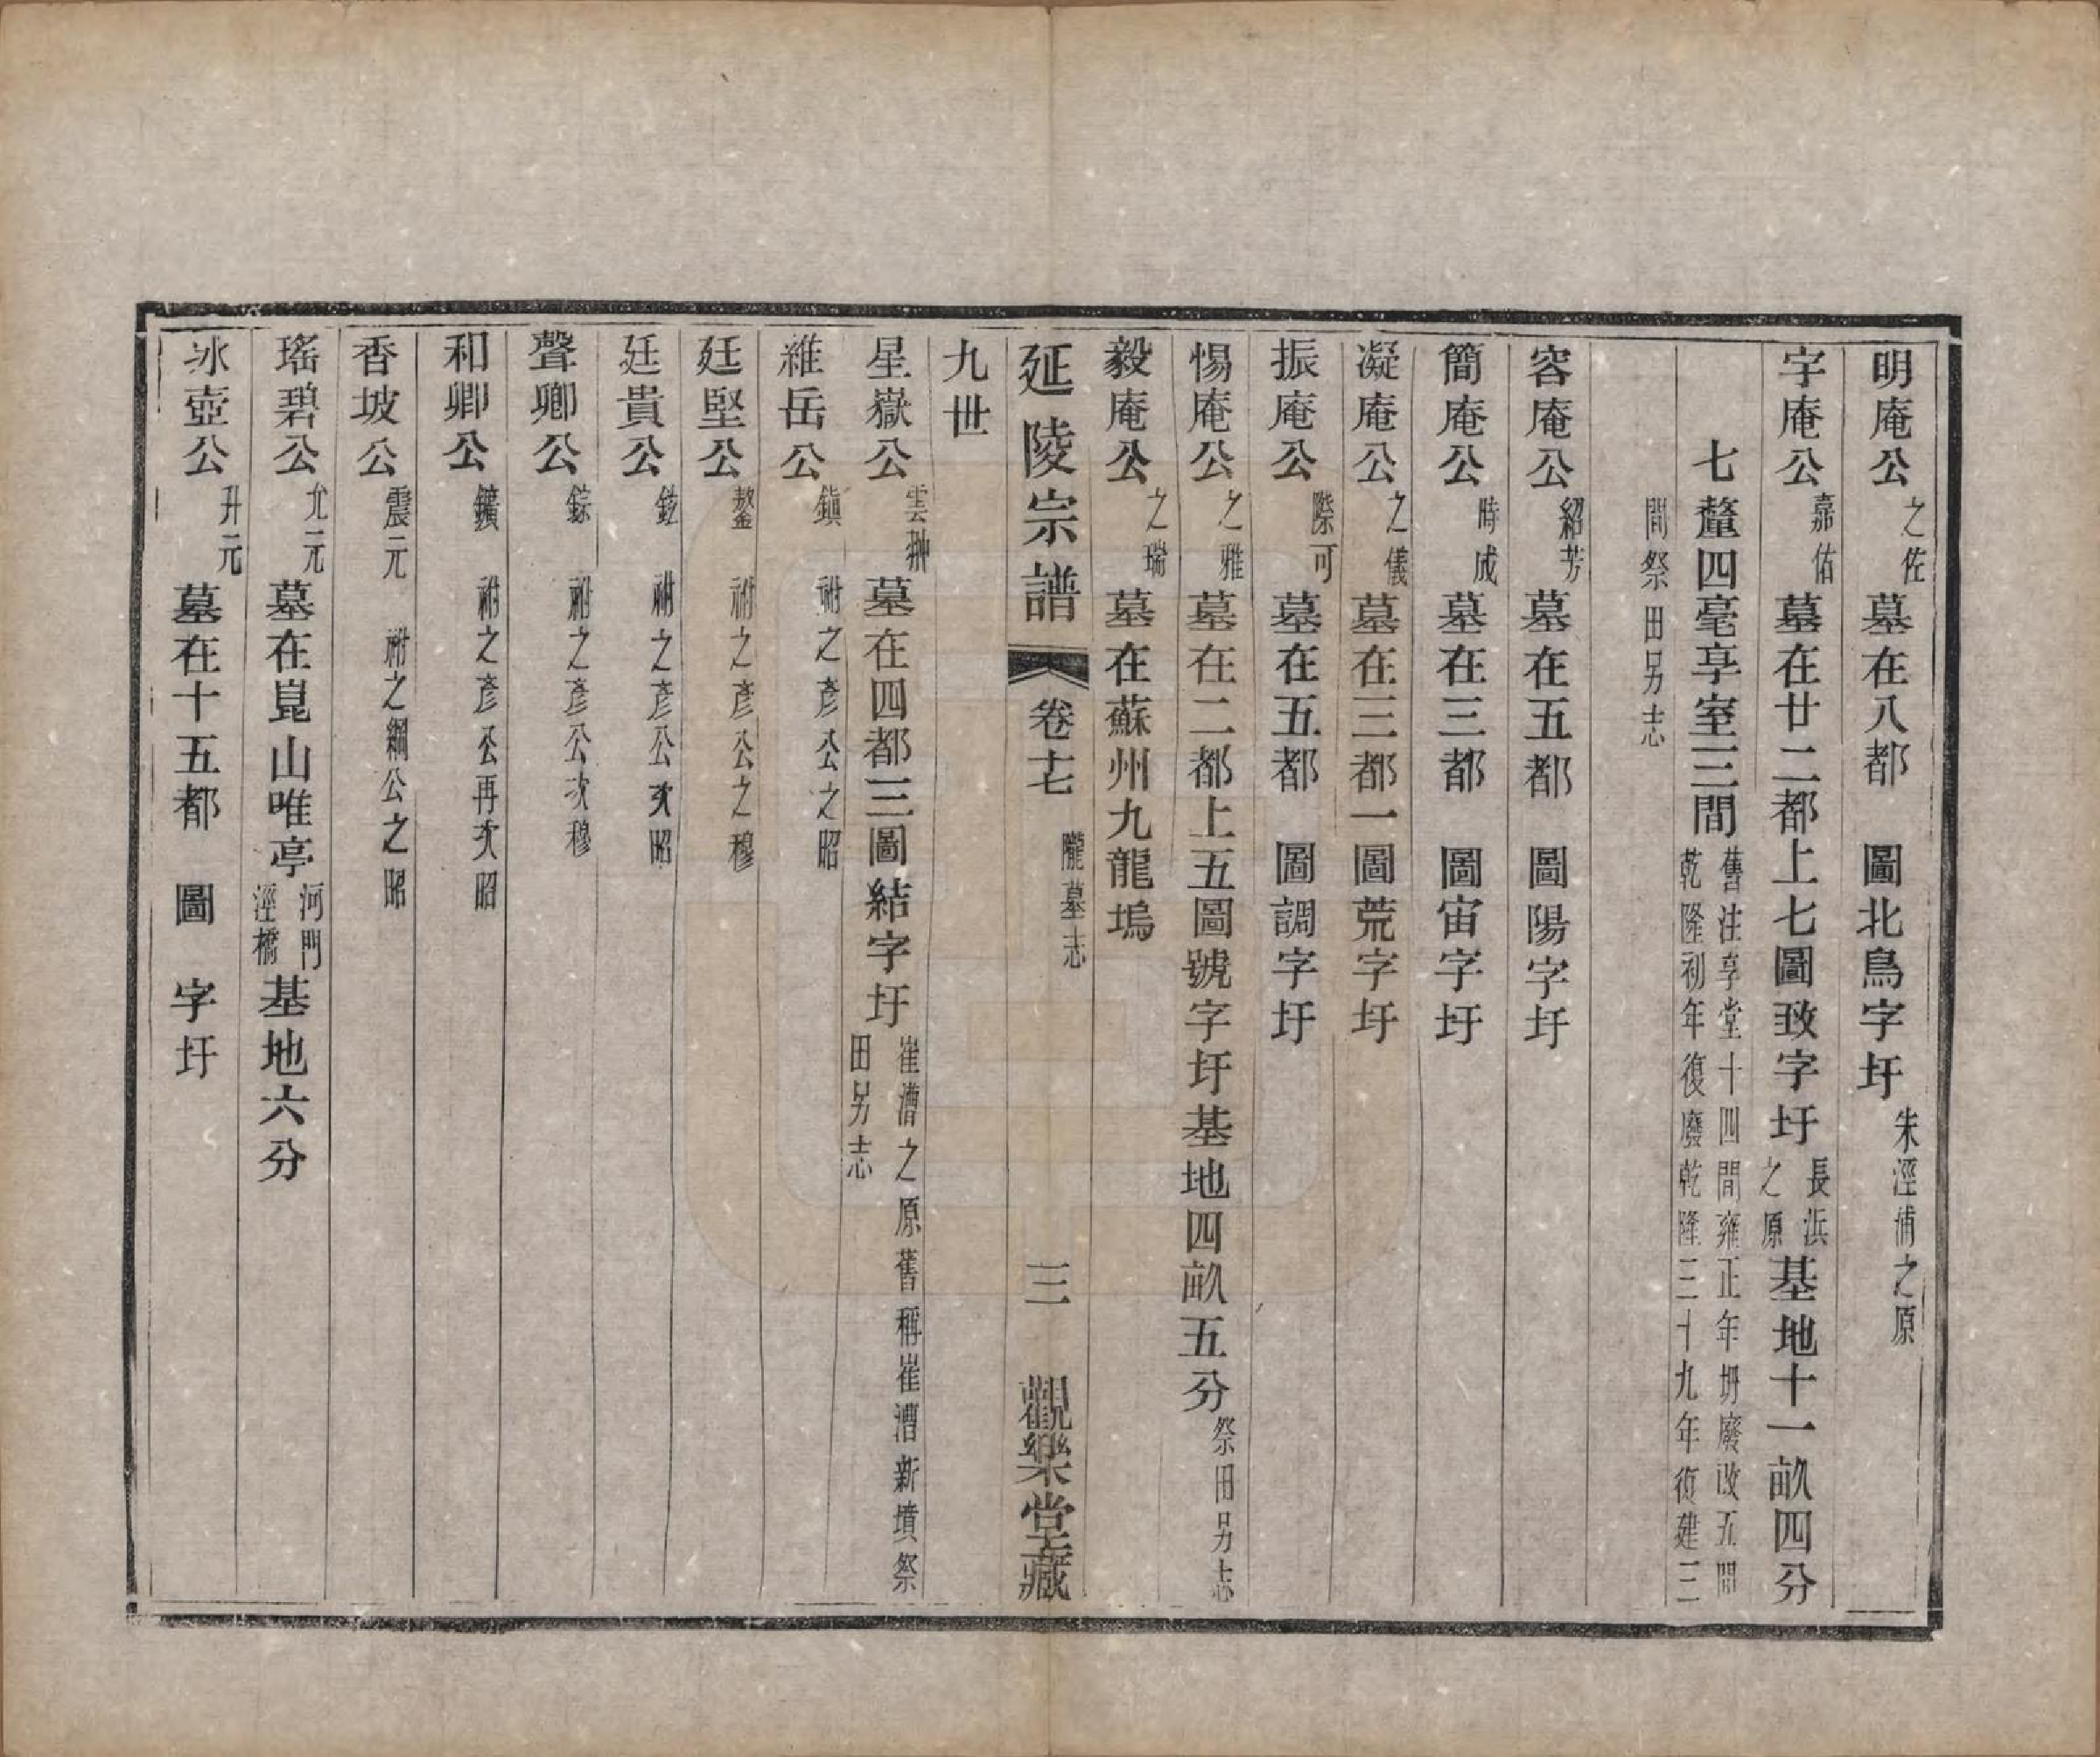 明庵公之佐墓在八都　圖北鳥字圩朱涇浦之原
字庵公嘉佑墓在廿二都上七圖致字圩長浜之原基地十一畝四分
七釐四毫享室三間舊注享堂十四間雍正年坍廢改五間乾隆初年復廢乾隆三十九年復建三
間祭田另志
容庵公紹芳墓在五都　圖陽字圩
簡庵公時成墓在三都　圖宙字圩
凝庵公之儀墓在三都一圖荒字圩
振庵公際可墓在五都　圖調字圩
惕庵公之雅墓在二都上五圖號字圩基地四畝五分祭田另志
毅庵公之瑞墓在蘇州九龍塢
延陵宗譜　卷十七　隴墓志　三　觀樂堂藏
九世
星嶽公雲翀墓在四都三圖結字圩崔漕之原舊稱崔漕新墳祭田另志
維岳公鎮　祔之彥公之昭
廷堅公鏊　祔之彥公之穆
廷貴公鉉　祔之彥公次昭
聲卿公錝　祔之彥公次穆
和卿公鑛　祔之彥公再次昭
香坡公震元　祔之綱公之昭
瑤碧公允元墓在崑山唯亭河門涇橋基地六分
冰壺公升元墓在十五都　圖　字圩